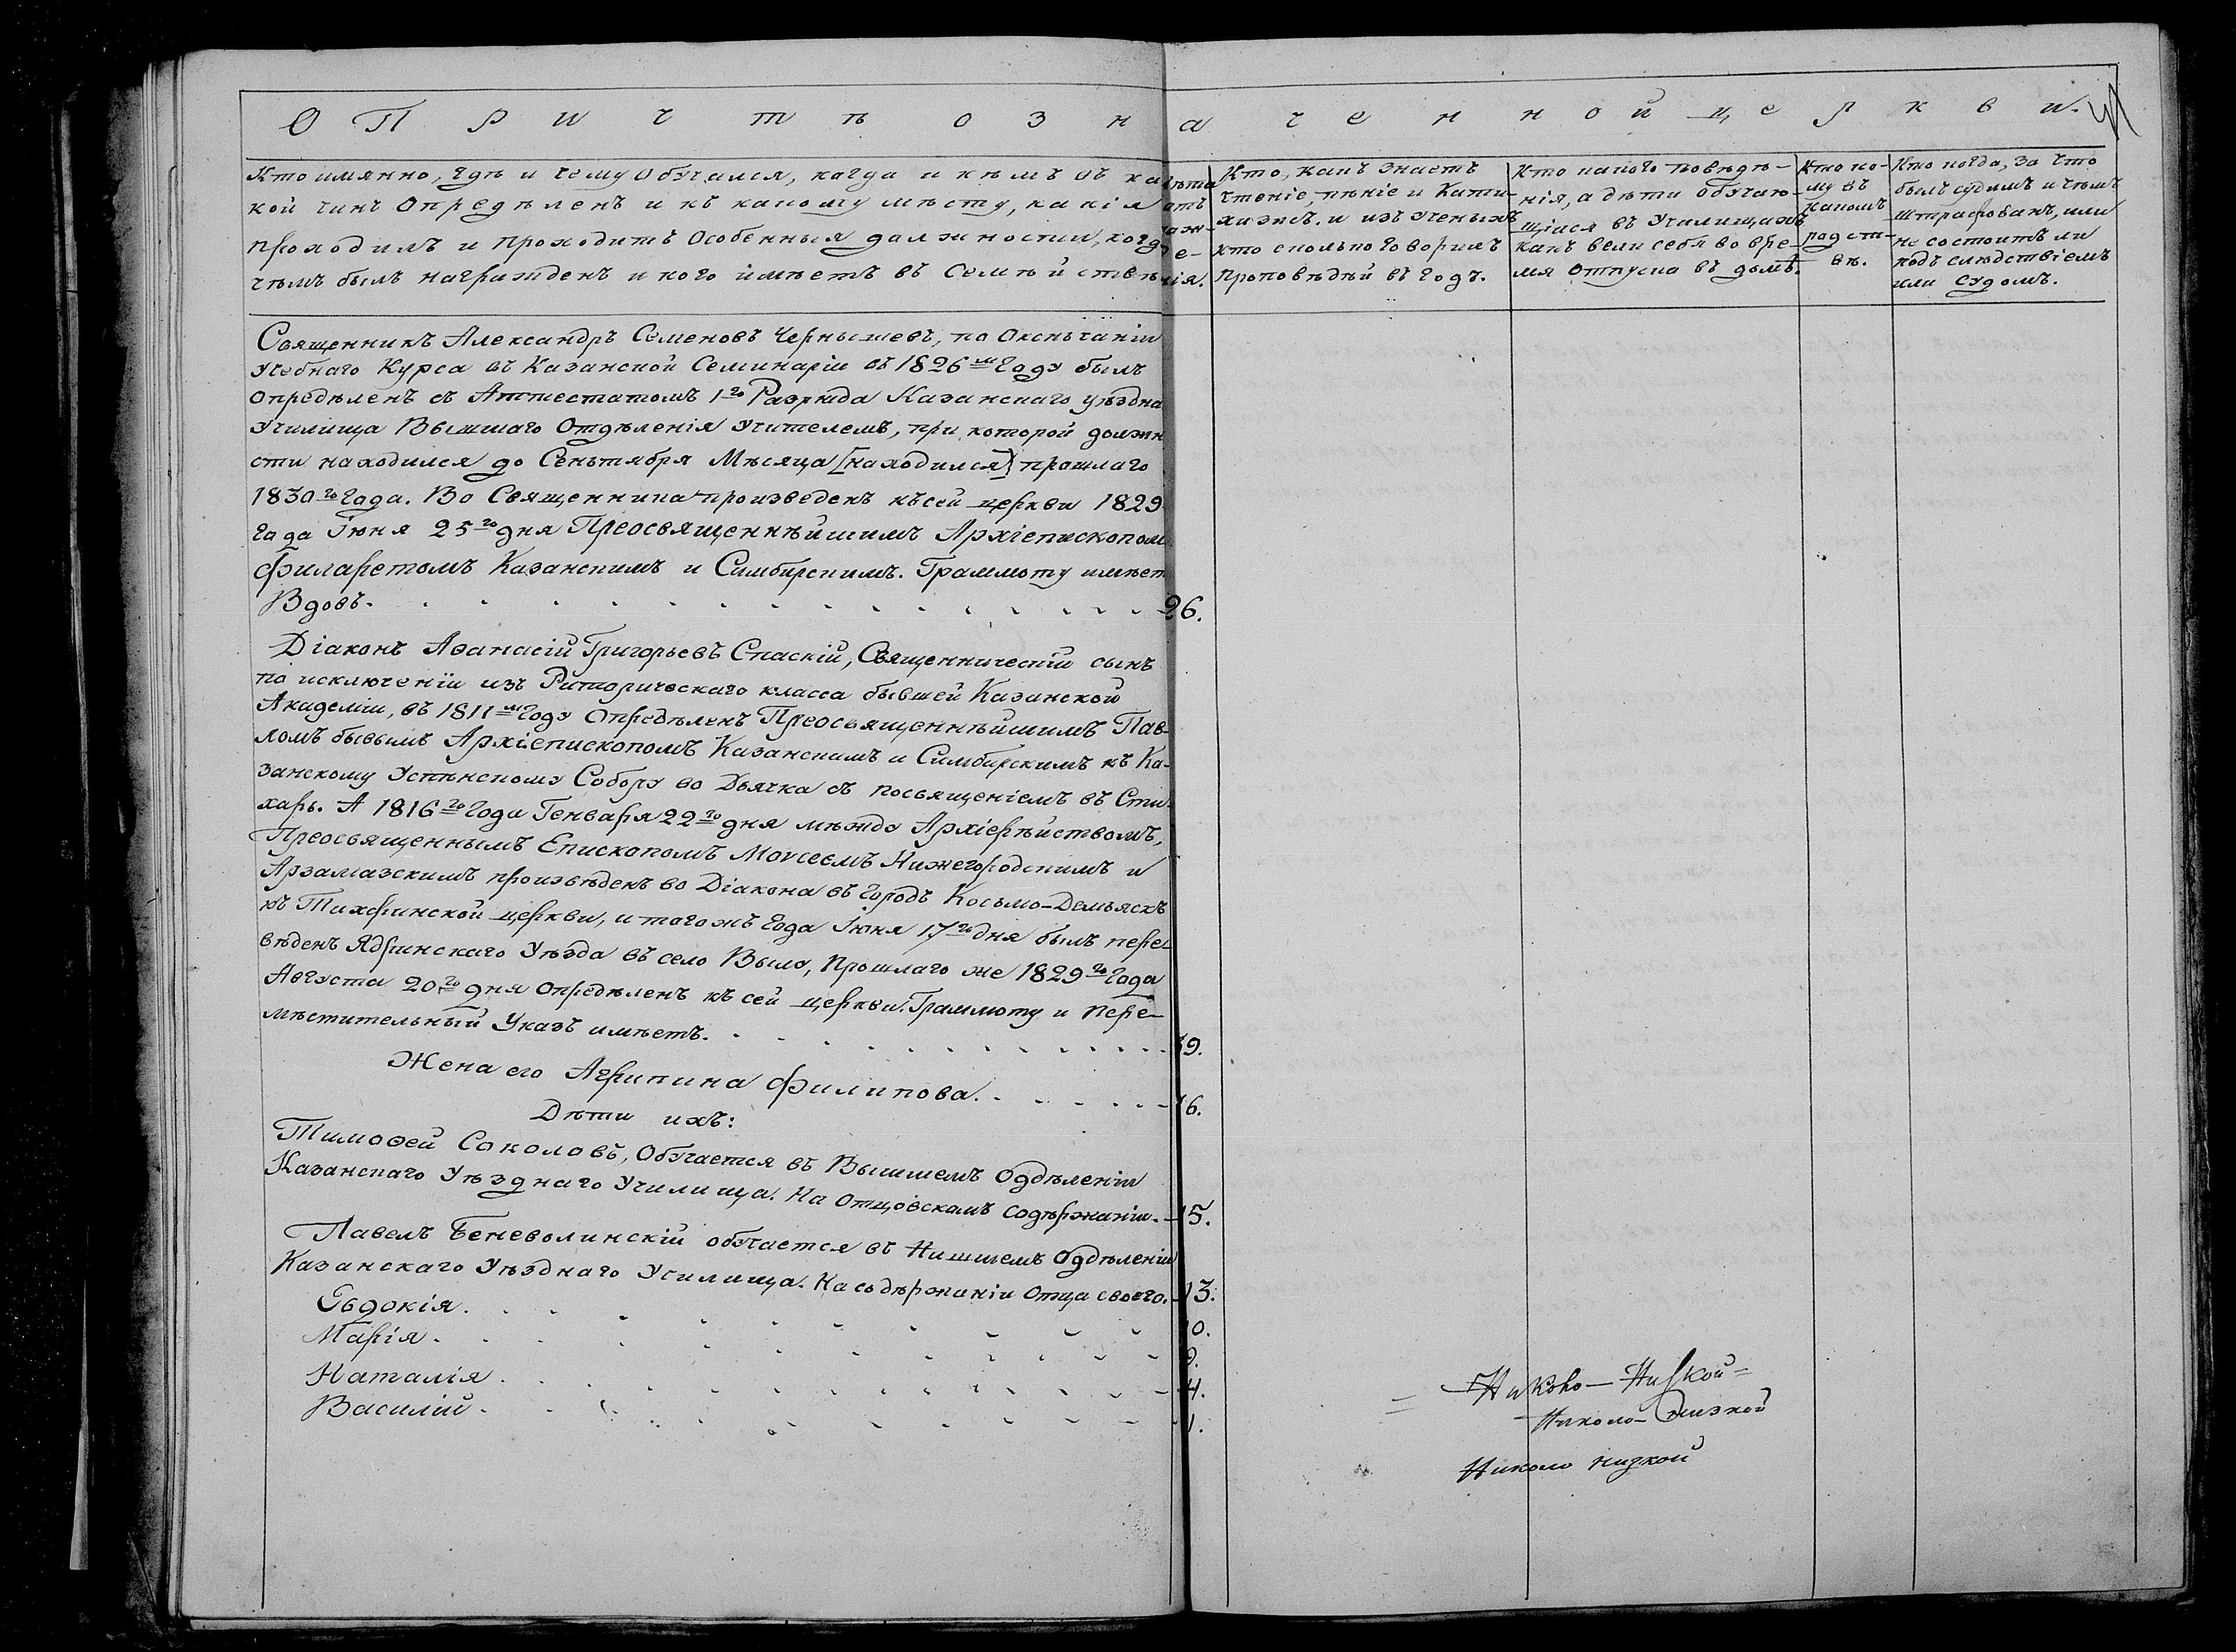 О Причтѣ означенной церкви.
Кто имянно, гдѣ и чему Обучался, когда и кѣмъ въ ка
кой чинъ Опредѣленъ и къ какому мѣсту, какія
проходилъ и проходитъ Особенныя должности, когд
чѣмъ былъ награжденъ и кого имѣетъ въ Семѣйствѣ
Кто, какъ знаетъ
чтеніе, пѣніе и Кати-
хизисъ. и изъ ученыхъ
кто сколько говорилъ
проповѣдѣй въ годъ.
Кто какого повѣдѣ-
нія, а дѣти обучаю-
щіися въ Училищахъ
какъ вели себя во вре-
мя отпуска въ домъ.
Кто ко-
му въ
какомъ
родст-
вѣ.
Кто когда, за что
былъ судимъ и чѣмъ
штрафованъ, или
не состоитъ ли
подъ слѣдствіемъ
или судомъ.
Священникъ Александръ Семеновъ Чернышевъ, по Оконьчаніи
Учебнаго Курса въ Казанской Семинаріи въ 1826м Году былъ
Опредѣленъ съ Аттестатомъ 1го Разряда Казанскаго уѣздна
Училища Вышшаго Отдѣленія Учителемъ, при которой должн
сти находился до Сеньтября Мѣсяца [находился] прошлаго
1830го Года. Во Священника произведенъ къ сей церкви 1829
Года Іюня 25го дня Преосвященнѣйшимъ Архіепископом
Филаретомъ Казанскимъ и Симбирскимъ. Граммоту имѣет
Вдовъ. 26.
Діаконъ Аѳанасій Григорьевъ Спаскій, Священническій сынъ
по исключеніи изъ Риторическаго класса бывшей Казанской
Академіи, въ 1811м Году Опредѣленъ Преосвященнѣйшимъ Пав-
ломъ бывымъ Архіепископомъ Казанскимъ и Симбирскимъ къ Ка-
занскому Успѣнскому Собору во Дьячка съ посвященіемъ въ Сти-
харь. А 1816го Года Генваря 22го дня мѣжду Архіерѣйствомъ,
Преосвященнымъ Епископомъ Моѵсеемъ Нижегородскимъ и
Арзамазскимъ произвѣденъ во Діакона въ городъ Козьмо-Демьяскъ
къ Тихфинской церкви, и тогожъ Года Іюня 17го дня былъ пере-
вѣденъ Ядринскаго Уѣзда въ село Выло, Прошлаго же 1829го Года
Августа 20го дня Опредѣленъ къ сей церкви. Граммоту и Пере-
мѣстительный Указъ имѣетъ. 39.
Жена его Агрипина Филипова. 36.
Дѣти ихъ:
Тимоѳей Соколовъ, Обучается въ Вышшемъ Одѣленіи
Казанскаго Уѣзднаго Училища. На Отцовскомъ содѣржаніи. 15.
Павелъ Беневолинскій обучается въ Нишшемъ Оддѣленіи
Казанскаго Уѣзднаго Училища. На содѣржаніи Отца своего. 13.
Евдокія. 10.
Марія. 9.
Наталія. 4.
Василій. 1.
Николо-Низкой
Николо низкой